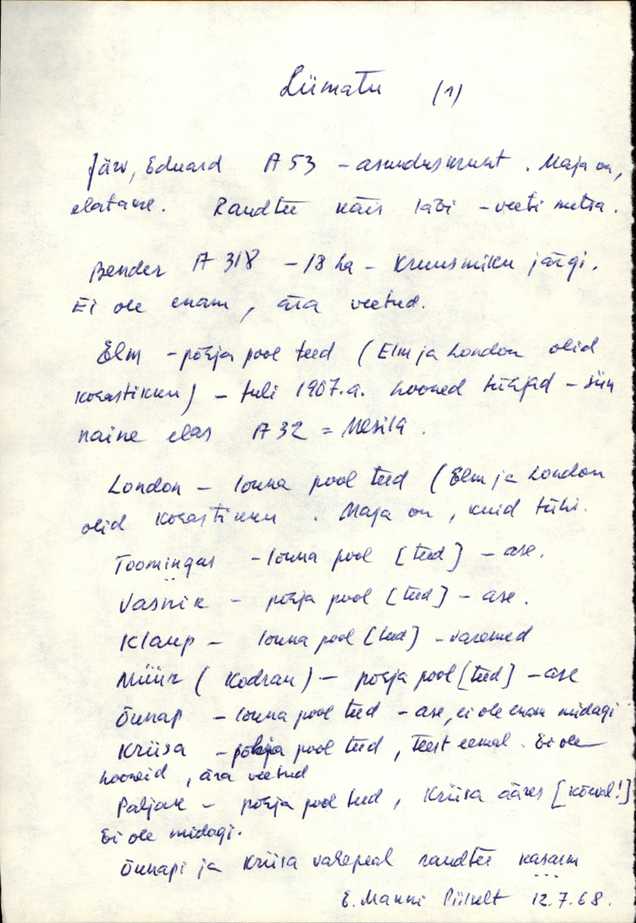 Liimatu (1)
Järv, Eduard A 53 – asunduskrunt. Maja on,
elatakse. Raudtee käis läbi – veeti metsa.
Bender A 318 – 18 ha – Kruusmiku järgi.
Ei ole enam, ära veetud.
Elm – põhja pool teed (Elm ja London olid
kohastikku) – tuli 1907.a. hooned tühjad – siin
naine elas A 32 = Mesila.
London – lõuna pool teed (Elm ja London
olid kohastikku. Maja on, kuid tühi.
Toomingas – lõuna pool [teed] – ase.
Vasnik – põhja pool [teed] – ase.
Klaup – lõuna pool [teed] – varemed
Müür (Kodran) – põhja pool [teed] – ase
Õunap – lõuna pool teed – ase, ei ole enam midagi
Kriisa – põhja pool teed, teest eemal. Ei ole
hooneid, ära veetud
Paljak – põhja pool teed, Kriisa ääres [kõrval!]
Ei ole midagi.
Õunapi ja Kriisa vahepeal raudtee
E. Manni 12.7.68.